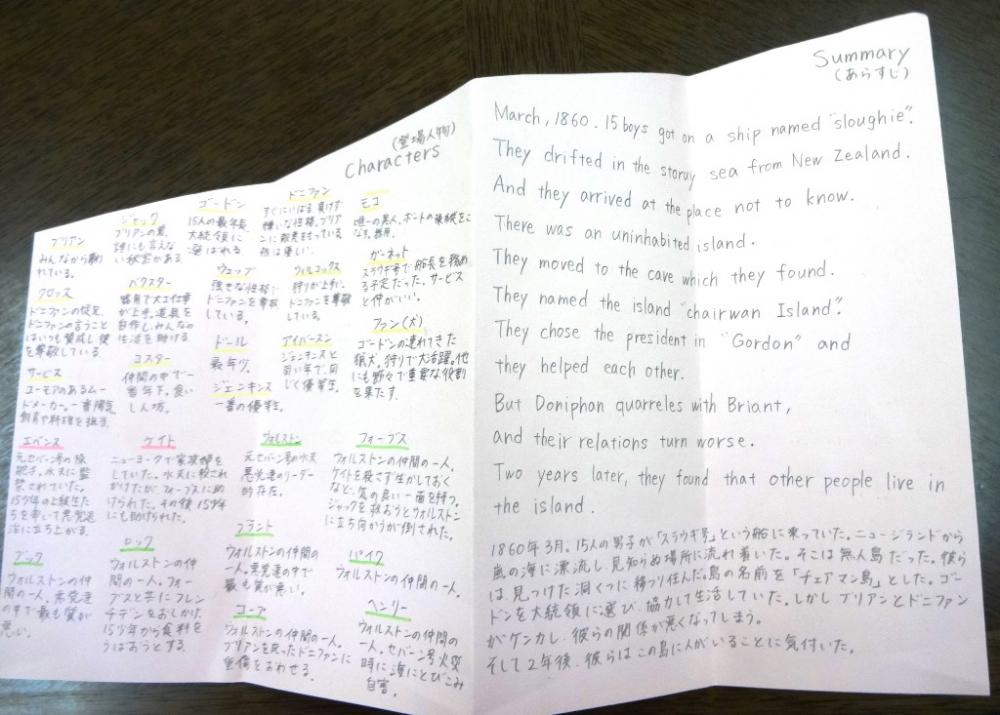 (登場人物)
Characters
ブリアン
みんなから慕わ
れている。
ジャック
ブリアンの弟。
誰にも言えな
い秘密がある
ゴードン
15人の最年長
大統領に
選ばれる
ドニファン
すぐにいばる 負けず
嫌いな性格。ブリア
ンに敵意をもっている
モコ
唯一の黒人。ボートの操縦をこ
なす。
クロッス
ドニファンの従兄
ドニファンの言うこと
はいつも賛成し、彼
を尊敬している。
バクスター
器用で大工仕事
が上手。道具を
自作し、みんなの
生活を助ける
ウェッブ
強気な性格で
ドニファンを尊敬
している。
ウィルコックス
狩りが上手い。
ドニファンを尊敬
している。
ガーネット
スラウギ号で船長を務め
る予定だった。サービス
と仲がいい。
サービス
ユーモアのあるムー
ドメーカー。一番陽気
飼育や料理を担当。
コスター
仲間の中で一
番年下。食い
しん坊。
ドール
最年少。
ジェンキンス
一番の優等生。
アイバースン
ジェンキンスと
同い年で、同
じく優等生。
ファン(犬)
ゴードンの連れてきた
猟犬。狩りで大活躍。他
にも野々で重要な役割
を果たす。
エバンス
元セバン号の操
舵手。水夫に監
禁されていた。
15少年の上級生た
ちを率いて悪党退
治に立ち上がる。
ケイト
ニューヨークで家政婦を
していた。水夫に殺され
かけたが、フォーブスに助
けられた。その後15少年
にも助けられた。
ウォルストン
元セバン号の水夫
悪党達のリーダー
的存在。
フォーブス
ウォルストンの仲間の一人。
ケイトを殺さず生かしておく
など、気の良い一面を持つ。
ジャックを救おうとウォルストン
に立ち向かうが倒された。
ブック
ウォルストンの仲
間の一人。悪党達
の中で最も質が
悪い。
ロック
ウォルストンの仲
間の一人。フォー
ブスと共にフレン
チデンをおしかけ、
15少年から食料を
うばおうとする。
ブラント
ウォルストンの仲間の
一人。悪党達の中で
最も質が悪い。
パイク
ウォルストンの仲間の一人。
コープ
ウォルストンの仲間の一人。
ブリアンを庇ったドニファンに
重傷をおわせる。
ヘンリー
ウォルストンの仲間の
一人。セバーン号火災
時に海にとびこみ
自害。
Summary
(あらすじ)
March, 1860. 15 boys got on a ship named "sloughie".
They drifted in the stormy sea from New Zealand.
And they arrived at the place not to know.
There was an uninhabited island.
They moved to the cave which they found.
They named the island "chairwan Island".
They chose the president in "Gordon" and
they helped each other.
But Doniphan quarreles with Briant,
and their relations turn worse.
Two years later, they found that other people live in
the island.
1860年3月。15人の男子が「スラウギ号」という船に乗っていた。ニュージランドから
嵐の海に漂流し、見知らぬ場所に流れ着いた。そこは無人島だった。彼ら
は、見つけた洞くつに移り住んだ。島の名前を「チェアマン島」とした。ゴー
ドンを大統領に選び、協力して生活していた。しかし ブリアンとドニファン
がケンカし、彼らの関係が悪くなってしまう。
そして2年後、彼らはこの島に人がいることに気付いた。